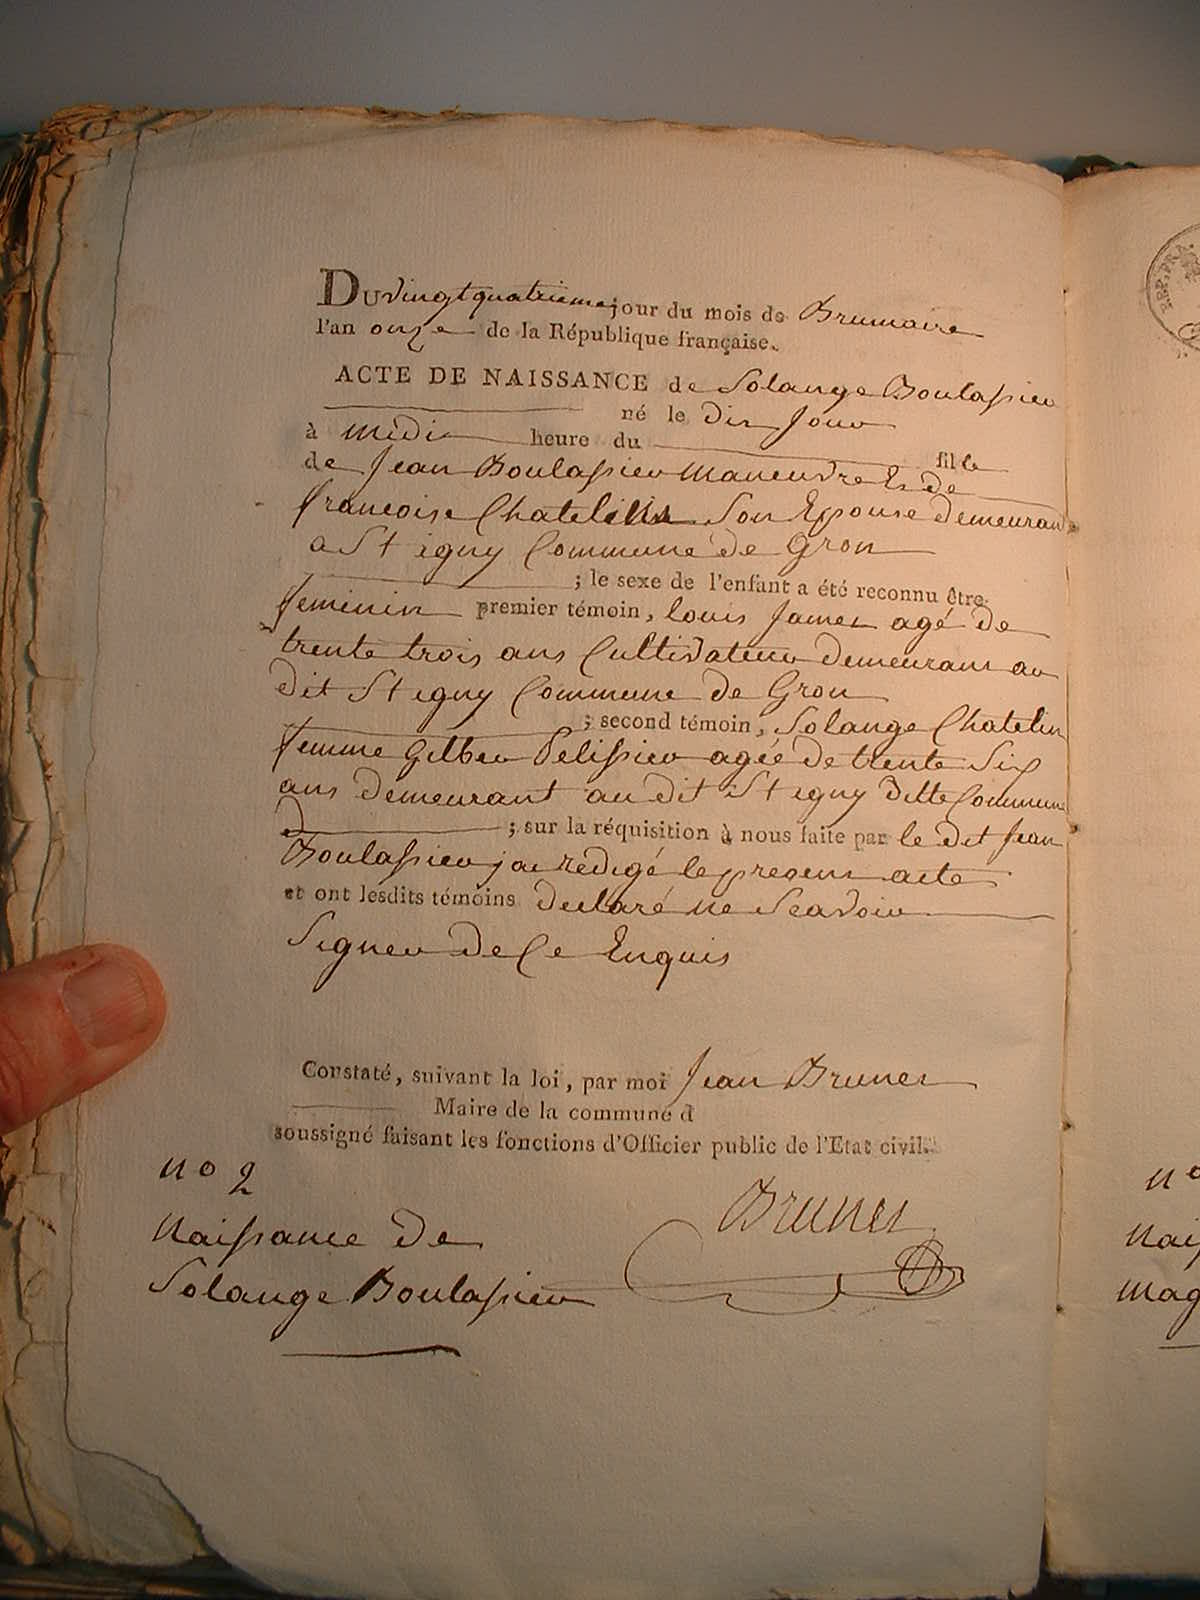 Du vingt quatrieme jour du mois de Brumaire
l'an onze de la République française.
ACTE DE NAISSANCE de Solange Boulassier
né le dix Jour
à midi heure du fille
de Jean Boulassier maneuvre & de
francoise Chatelin Son Epouse demeurant
a St igny Commune de Gron
; le sexe de l'enfant a été reconnu être
feminin premier témoin, louis Jamet agé de
trente trois ans Cultivateur demeurant au
dit St igny Commune de Gron
; second témoin, Solange Chatelin
femme Gilber Pelissier agée de trente Six
ans demeurant au dit St igny ditte Commune
; sur la réquisition à nous faite par le dit Jean
Boulassier jai redigé le present acte
et ont lesdits témoins declaré ne Scavoir
Signer de Ce Enquis
Constaté, suivant la loi, par moi Jean Brunet
Maire de la commune d
soussigné faisant les fonctions d'Officier public de l'Etat civil.
Brunet
no 2
Naissance de
Solange Boulassier
REP. FRA.
no
Nais
Mag